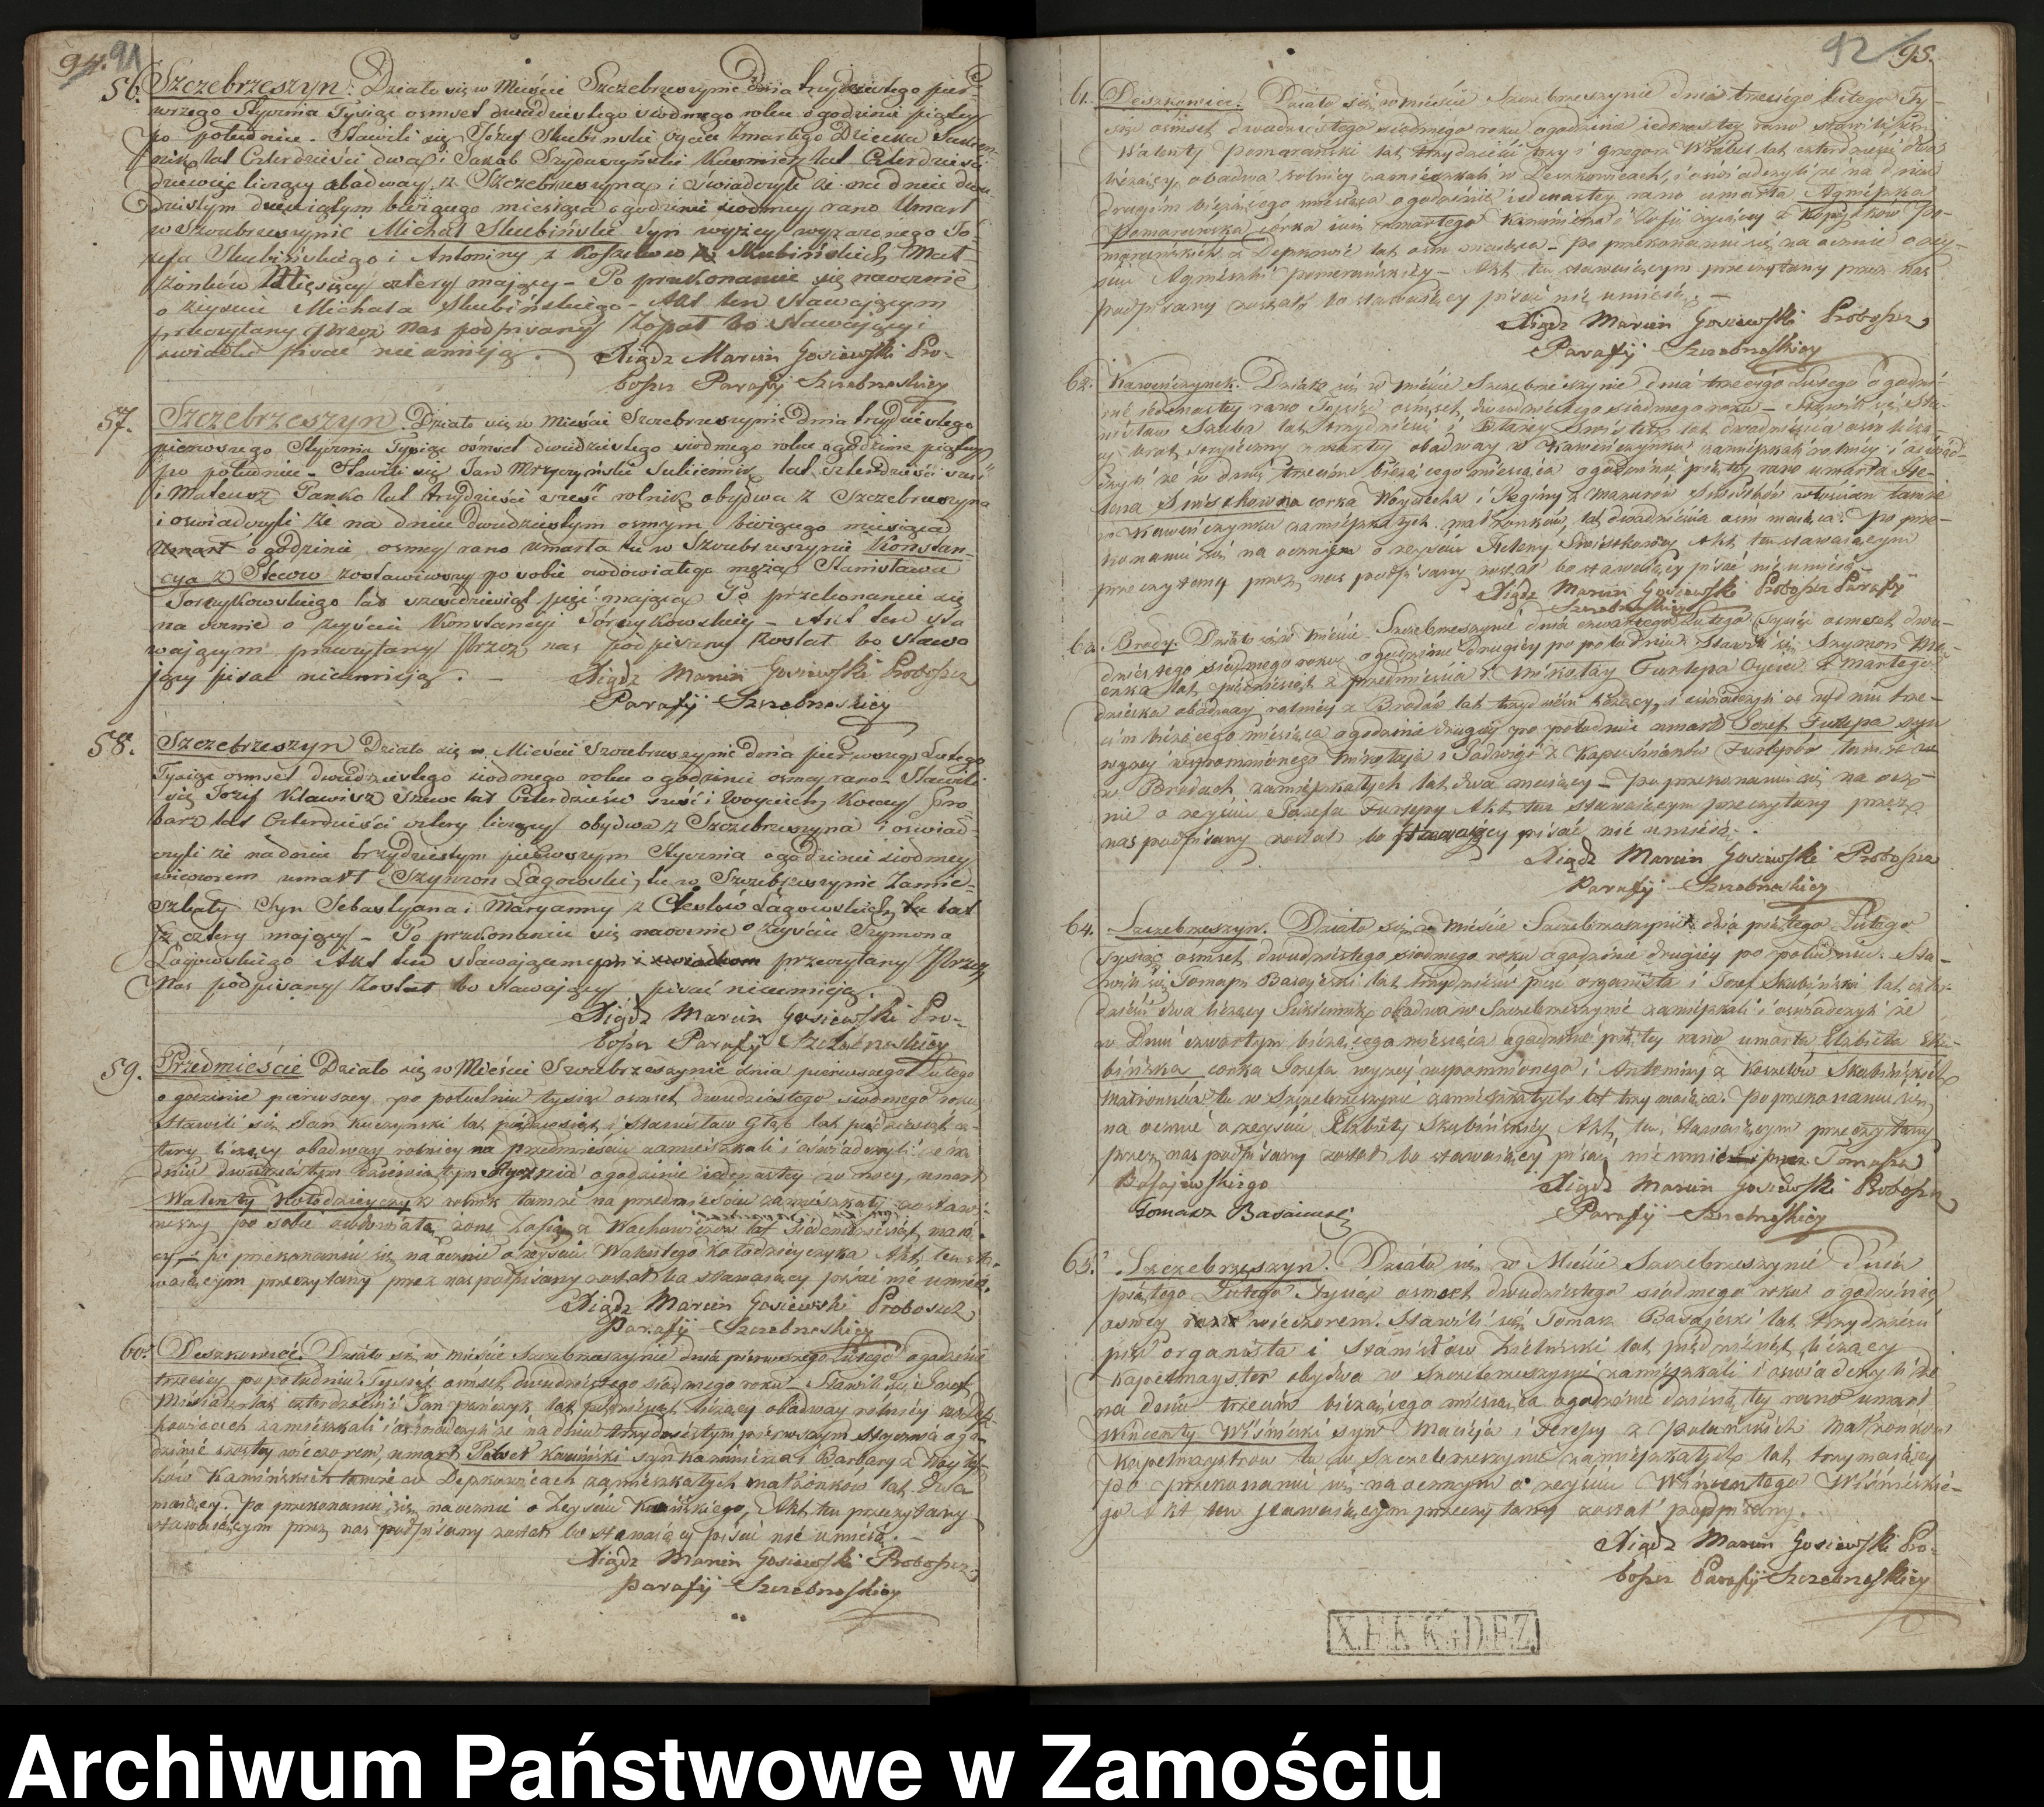 94. 91
56. Szczebrzeszyn. Działo się w Mieście Szczebrzeszynie Dnia trzydziestego pier-
wszego Stycznia Tysiąc osmset dwudziestego siodmego roku o godzinie piątey
po południu. Stawili się Józef Skubinski oyciec Zmarłego Dziecka
lat Czterdzieści dwa i Jakób Szyduczyński Kusmierz lat Czterdzieści
dziewięć liczący obadway z Szczebrzeszyna i oświadczyli że na dniu dwu-
dziestym dziewiątym bieżącego miesiąca o godzinie siodmey rano Umarł
w Szczebrzeszynie Michał Skubiński syn wyżey wyrażonego Jo-
zefa Skubińskiego i Antoniny z Koszelow Skubińskich Mał-
żonków Miesięcy cztery mający - Po przekonaniu się naocznie
o zeyściu Michała Skubińskiego - Akt ten Stawającym
przeczytany przez nas podpisany Został bo Stawający i
świadek pisać nie umieją. Xiądz Marcin Gosiewski Pro-
boszcz Parafij Szczebrzeskiey
57. Szczebrzeszyn. Działo się w Mieście Szczebrzeszynie Dnia trzydziestego
pierwszego Stycznia Tysiąc ośmset dwudziestego siodmego roku o godzinie piątey
po południu - Stawili się Jan Mrzyczyński Sukiennik lat Czterdzieści sześć
i Mateusz Panko lat trzydzieści sześć rolnik obydwa z Szczebrzeszyna
i oswiadczyli że na dniu dwudziestym osmym bieżącego miesiąca
Umarł o godzinie osmey rano umarła tu w Szczebrzeszynie Konstan-
cya z Stecow zostawiwszy po sobie owdowiałego męża Stanisława
Torzykowskiego lat mająca Po przekonaniu się
na ocznie o zeyściu Konstancyi Torzykowskiey - Akt ten sta
wającym przeczytany Przez nas podpisany Został bo stawa
jący pisac nieumieją. - Xiądz Marcin Gosiewski Proboszcz
Parafij Szczebrzeskiey
58. Szczebrzeszyn Działo się w Mieście Szczebrzeszynie Dnia pierwszego Lutego
Tysiąc osmset dwudziestego siodmego roku o godzinie osmey rano Stawili
się Jozef Klawisz szewc lat Czterdzieści sześć i Woyciech Koccey Gro
barz lat Czterdzieści cztery liczący obydwa z Szczebrzeszyna i oswiad-
czyli że na dniu trzydziestym pierwszym Stycznia o godzinie siodmey
wieczorem umarł Szymon Łagowski, tu w Szczebrzeszynie Zamie-
szkały Syn Sebastyana i Maryanny z Łagowskich lat
cztery mający - Po przekonaniu się naocznie o zeyściu Szymona
Łagowskiego Akt ten stawającemu i świadkom przeczytany Przez
Nas podpisany Został bo stawający pisać nieumieją.
Xiądz Marcin Gosiewski Pro-
boszcz Parafij Szczebrzeskiey
59. Przedmieście Działo się w Mieście Szczebrzeszynie dnia pierwszego Lutego
o godzinie pierwszey po południu tysiąc osmset dwudziestego siodmego roku
Stawili się Jan Kuczynski lat pięćdziesiąt i Stanisław Głąb lat pięćdziesiąt cz-
tery liczący obadway rolnicy na przedmieściu zamieszkali i oświadczyli że na
dniu dwudziestym dziewiątym Stycznia o godzinie iedenastey w nocy, umarł
Walenty Kołodzieyczyk rolnik tamże na przedmieściu zamieszkały zostawi-
wszy po sobie owdowiałą żonę Zofią z Wachowiczow lat siedemdziesiąt maią-
cy - po przekonaniu się na ocznie o zeyściu Walentego Kołodzieyczyka Akt ten sta-
waiącym przeczytany przez nas podpisany został bo stawaiący pisać nie umieią.
Xiądz Marcin Gosiewski Proboszcz
Parafij Szczebrzeskiey
60. Deszkowice. Działo się w mieście Szczebrzeszynie dnia pierwszego Lutego o godzinie
trzeciey popołudniu Tysiąc osmset dwudziestego siodmego roku - Stawili się Jozef
Misiarz lat czterdzieści i Jan panczyk lat pięćdziesiąt liczący obadway rolnicy w Desz-
kowicach zamieszkali i oświadczyli że na dniu trzydziestym pierwszym stycznia o go-
dzinie szostey wieczorem, umarł Paweł Kamiński syn Kazimierza i Barbary z Koyty-
ków Kamińskich tamże w Deszkowicach zamieszkałych małżonków lat dwa
maiący. po przekonaniu się naocznie o Zeyściu Kamińskiego, Akt ten przeczytany
stawaiącym przez nas podpisany został bo stawaiący pisać nie umieią. -
Xiądz Marcin Gosiewski Proboszcz
parafij Szczebrzeskiey
92 95.
61. Deszkowice. Działo się w mieście Szczebrzeszynie dnia trzeciego Lutego Ty-
siąc osmset dwudziestego siodmego roku o godzinie iedenastey rano stawili się
Walenty Pomarański lat trzydzieści trzy i Gregorz Wróbel lat czterdzieści dwa
liczący obadwa rolnicy zamieszkali w Deszkowicach, i oswiadczyli że na dniu
drugim bieżącego miesiąca o godzinie iedenastey rano umarła Agnieszka
Pomaranska córka iuż zmarłego Kazimierza i Zofii żyiącey z Kopytków Po-
marańskich z Deszkowic lat osm maiąca - po przekonaniu się na ocznie o zey-
ściu Agnieszki pomarańskiey - Akt ten stawaiącym przeczytany przez nas
podpisany został bo stawaiący pisać nie umieią -
Xiądz Marcin Gosiewski Proboszcz
Parafij Szczebrzeskiey
62. Kawenczynek. Działo się w mieście Szczebrzeszynie dnia trzeciego Lutego o godzi-
nie iedenastey rano Tysiąc osmset dwudziestego siodmego roku - Stawili się Sta-
nisław Szuba lat trzydzieści i Błażey Smieszek lat dwadzieścia osm liczą-
cy brat stryieczny zmarłey obadway w Kawenczynku zamieszkali rolnicy i oświad-
czyli że w dniu trzecim bieżącego miesiąca o godzinie piątey rano umarła He-
lena Smieszkowna corka Woyciecha i Reginy z Mazurów Smieszków włościan tamże
w Kawenczynku zamieszkałych małżonków, lat dwadzieścia osm maiąca. Po prze-
konaniu się na ocznie o zeyściu Heleny Smieszkowny Akt ten stawaiącym
przeczytany przez nas podpisany został bo stawaiący pisać nie umieią
Xiądz Marcin Gosiewski Proboszcz Parafij
Szczebrzeskiey
63. Brody. Działo się w mieście Szczebrzeszynie dnia czwartego Lutego Tysiąc osmset dwu-
dziestego siodmego roku o godzinie drugiey po południu. Stawili się Szymon
lat pięćdziesiąt z przedmieścia i Mikołay Furlepa Oyciec zmarłego
dziecka obadway rolnicy z Brodów lat trzydzieści liczący, i oswiadczyli że w dniu trze-
cim bieżącego miesiąca o godzinie drugiey po południu umarł Jozef Furlepa syn
wyżey wspomnionego Mikołaja i Jadwigi z Kapuśniaków Furlepów tamże
w Brodach zamieszkałych lat dwa maiący - po przekonaniu się na ocz-
nie o zeyściu Jozefa Furlepy Akt ten stawaiącym przeczytany przez
nas podpisany został bo stawaiący pisać nie umieią.
Xiądz Marcin Gosiewski Proboszcz
Parafij Szczebrzeskiey
64. Szczebrzeszyn. Działo się w mieście Szczebrzeszynie dnia piątego Lutego
Tysiąc ośmset dwudziestego siodmego roku o godzinie drugiey po południu. Sta-
wili się Tomasz Basajeski lat trzydzieści pięć organista i Jozef Skubiński lat czter-
dzieści dwa liczący Sukiennik, obadwa w Szczebrzeszynie zamieszkali i oświadczyli że
w Dniu czwartym bieżącego miesiąca o godzinie piątey rano umarła Elżbieta Sku-
bińska corka Jozefa wyżey wspomnionego i Antoniny z Koszelów Skubińskich
Małżonków tu w Szczebrzeszynie zamieszkałych lat trzy maiąca. Po przekonaniu się
na ocznie o zeyściu Elżbiety Skubińskiey Akt ten Stawaiącym przeczytany
przez nas podpisany został bo stawaiący pisać nie umie i przez Tomasza
Basajewskiego Xiądz Marcin Gosiewski Proboszcz
Tomasz Basaiewski Parafij Szczebrzeskiey
65. Szczebrzeszyn. Działo się w Mieście Szczebrzeszynie Dnia
piątego Lutego Tysiąc osmset dwudziestego siodmego roku o godzinie
osmey wieczorem. Stawili się Tomasz Basajeski lat trzydzieści
pięć organista i Stanisław Kiełuski lat pięćdziesiąt liczący
kapelmayster obydwa w Szczebrzeszynie zamieszkali i oswiadczyli że
na dniu trzecim bieżącego miesiąca o godzinie dziesiątey rano umarł
Wincenty Wiśniski syn Macieja i Teresy z Polańskich Małżonków
Kapelmaystrów tu w Szczebrzeszynie zamieszkałych lat trzy maiący
po przekonaniu się na ocznym o zeyściu Wincentego Wiśniskie-
go akt ten stawaiącym przeczytany został podpisany.
Xiądz Marcin Gosiewski Pro-
boszcz Parafij Szczebrzeskiey
X.F.K K. D.F.Z.
Archiwum Państwowe w Zamościu